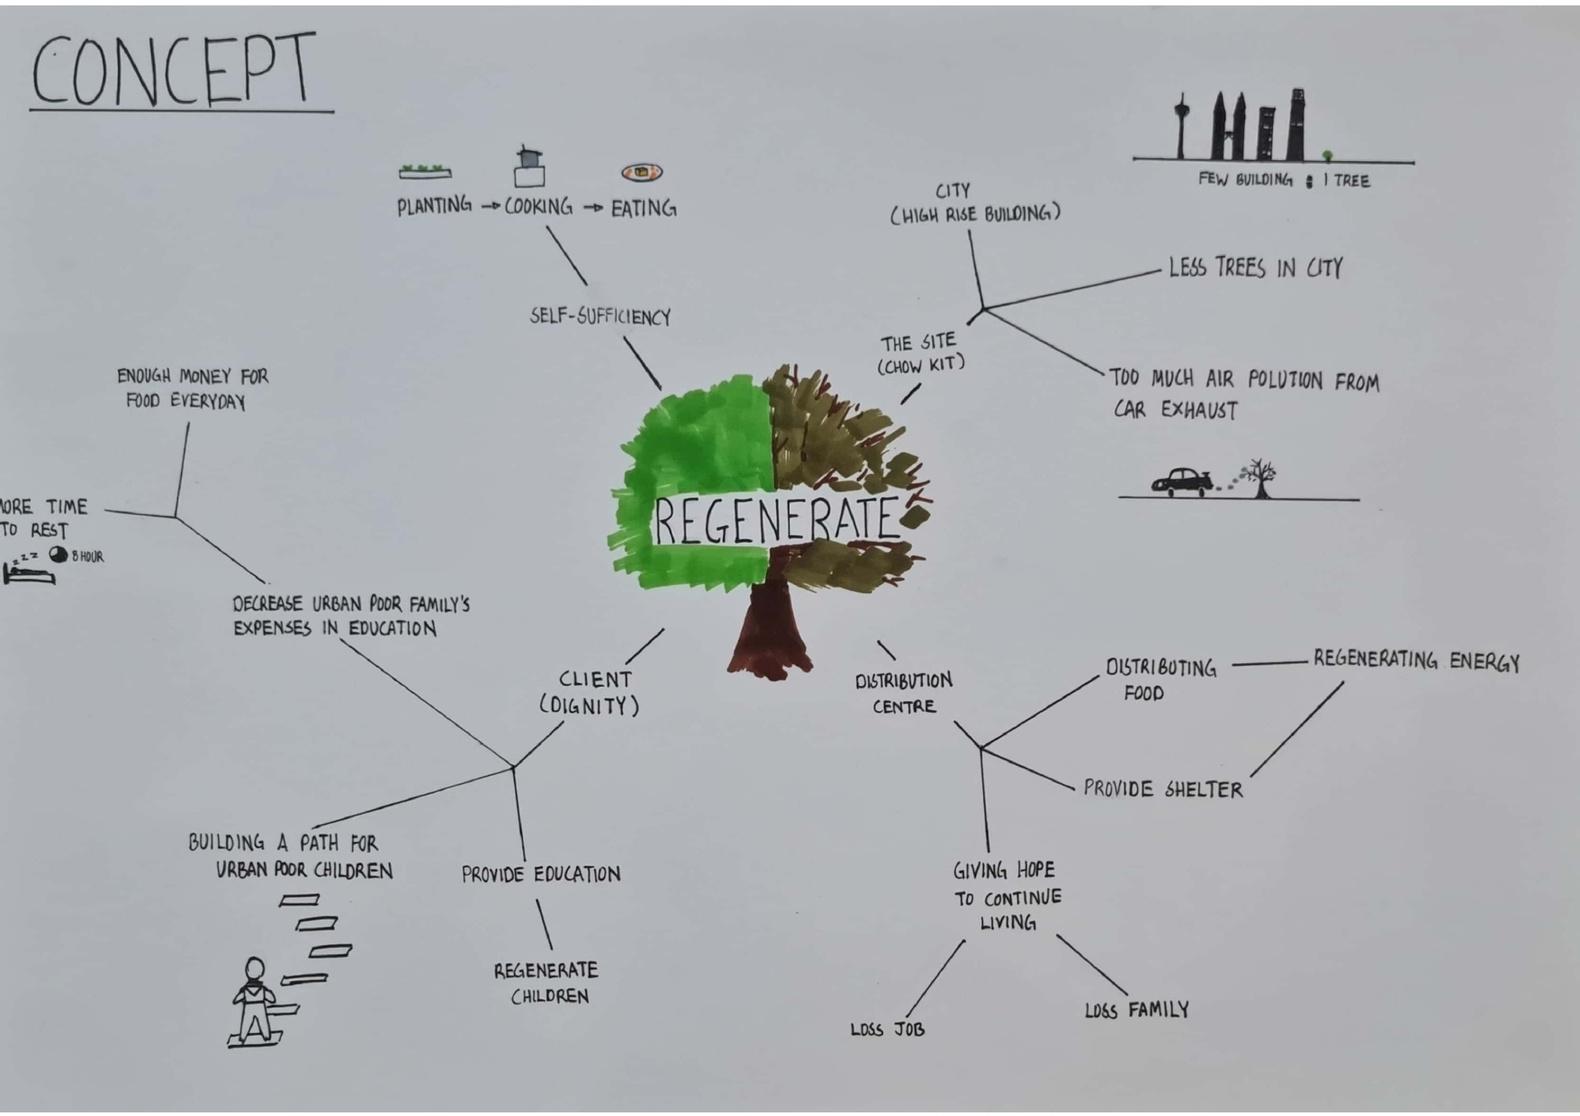 CONCEPT
PLANTING → COOKING → EATING
SELF-SUFFICIENCY
CITY
(HIGH RISE BUILDING)
FEW BUILDING : 1 TREE
LESS TREES IN CITY
THE SITE
(CHOW KIT)
TOO MUCH AIR POLUTION FROM
CAR EXHAUST
ENOUGH MONEY FOR
FOOD EVERYDAY
MORE TIME
TO REST
zzz 8 HOUR
REGENERATE
DECREASE URBAN POOR FAMILY'S
EXPENSES IN EDUCATION
CLIENT
(DIGNITY)
DISTRIBUTION
CENTRE
DISTRIBUTING
FOOD
REGENERATING ENERGY
PROVIDE SHELTER
BUILDING A PATH FOR
URBAN POOR CHILDREN
PROVIDE EDUCATION
REGENERATE
CHILDREN
GIVING HOPE
TO CONTINUE
LIVING
LOSS JOB
LOSS FAMILY